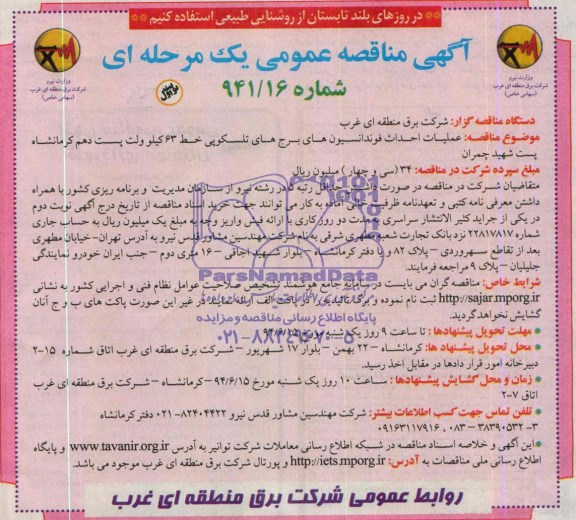 ** در روزهای بلند تابستان از روشنایی طبیعی استفاده کنیم **
آگهی مناقصه عمومی یک مرحله ای
شماره ۹۴۱/۱۶
وزارت نیرو
شرکت برق منطقه ای غرب
(سهامی خاص)
وزارت نیرو
شرکت برق منطقه ای غرب
(سهامی خاص)
دستگاه مناقصه گزار: شرکت برق منطقه ای غرب
موضوع مناقصه: عملیات احداث فونداسیون های برج های تلسکوپی خط ۶۳ کیلو ولت پست دهم کرمانشاه
پست شهید چمران
مبلغ سپرده شرکت در مناقصه: ۳۴ (سی و چهار) میلیون ریال
متقاضیان شرکت در مناقصه در صورت داشتن حداقل رتبه ۵ در رشته نیرو از سازمان مدیریت و برنامه ریزی کشور با همراه
داشتن معرفی نامه کتبی و تعهدنامه ظرفیت آماده به کار می توانند جهت خرید اسناد مناقصه از تاریخ درج آگهی نوبت دوم
در یکی از جراید کثیر الانتشار سراسری به مدت دو روز کاری با ارائه فیش واریز وجه به مبلغ یک میلیون ریال به حساب جاری
شماره ۲۲۸۱۷۸۱۷ نزد بانک تجارت شعبه مطهری شرقی به نام شرکت مهندسین مشاور قدس نیرو به آدرس تهران- خیابان مطهری
بعد از تقاطع سهروردی – پلاک ۸۲ و یا دفتر کرمانشاه – بلوار شهید اجاقی – ۱۶ متری دوم – جنب ایران خودرو نمایندگی
جلیلیان – پلاک ۹ مراجعه فرمایند.
شرایط خاص: مناقصه گران می بایست در سامانه جامع هوشمند تشخیص صلاحیت عوامل نظام فنی و اجرایی کشور به نشانی
http://sajar.mporg.ir ثبت نام نموده و برگ تائید را در پاکت الف ارائه نمایند در غیر این صورت پاکت های ب و ج آنان
گشایش نخواهد گردید.
مهلت تحویل پیشنهادها : تا ساعت ۹ روز یک شنبه مورخ ۹۴/۶/۱۵
محل تحویل پیشنهاد ها: کرمانشاه – ۲۲ بهمن – بلوار ۱۷ شهریور – شرکت برق منطقه ای غرب اتاق شماره ۱۵-۲
دبیرخانه امور قرار دادها در مقابل اخذ رسید.
زمان و محل گشایش پیشنهادها : ساعت ۱۰ روز یک شنبه مورخ ۹۴/۶/۱۵ – کرمانشاه – شرکت برق منطقه ای غرب
اتاق ۷-۲
تلفن تماس جهت کسب اطلاعات بیشتر: شرکت مهندسین مشاور قدس نیرو ۸۲۴۰۴۴۲۲-۰۲۱ دفتر کرمانشاه
۳-۳۸۳۹۰۵۳۲-۰۸۳ ، ۰۹۱۶۳۱۱۷۹۱۶
این آگهی و خلاصه اسناد مناقصه در شبکه اطلاع رسانی معاملات شرکت توانیر به آدرس www.tavanir.org.ir و پایگاه
اطلاع رسانی ملی مناقصات به آدرس: http://iets.mporg.ir و پورتال شرکت برق منطقه ای غرب موجود می باشد.
روابط عمومی شرکت برق منطقه ای غرب
ParsNamadData
پایگاه اطلاع رسانی مناقصه و مزایده
۰۲۱-۸۸۳۴۹۶۷۰-۵